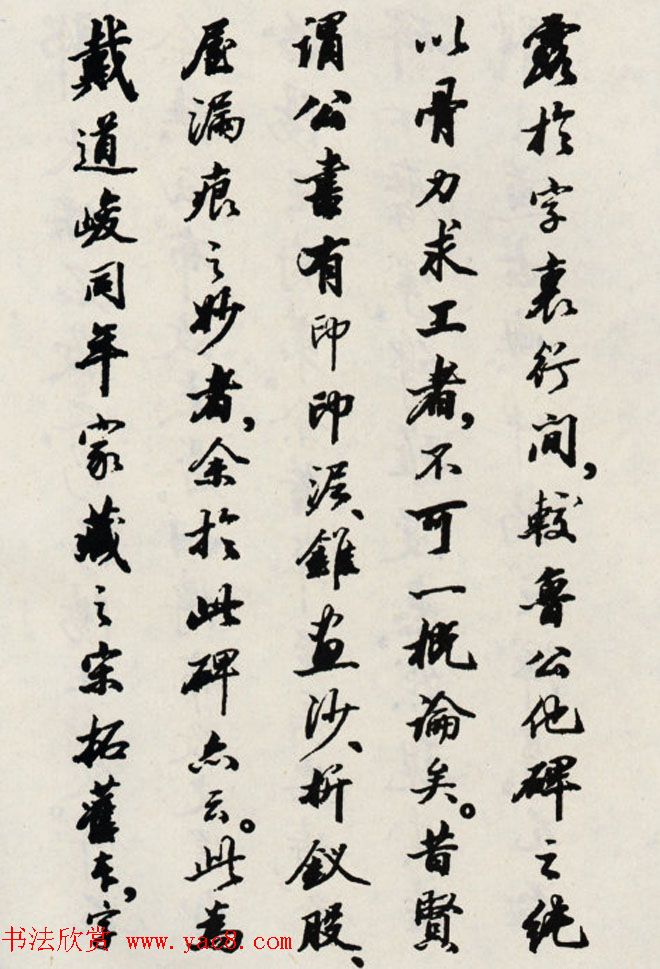 露於字裏行間，較魯公他碑之純
以骨力求工者，不可一概論矣。昔賢
謂公書有印印泥、錐畫沙、折釵股、
屋漏痕之妙者，余於此碑亦云。此為
戴道峻同年家藏之宋拓舊本，字
书法欣赏 www.yac8.com